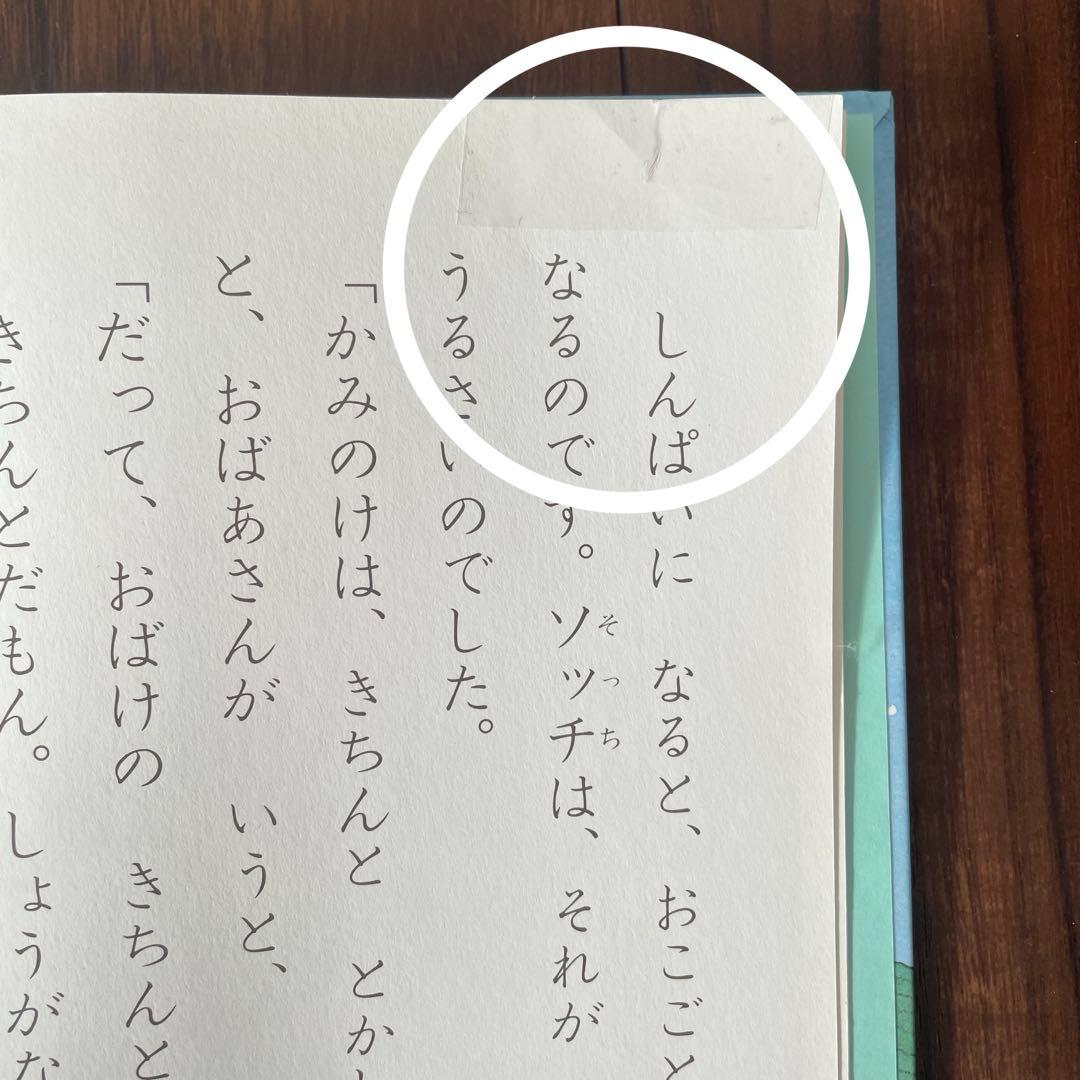 しんぱいに なると、 おこごと
なるのです。 ソッチは、 それが
うるさいのでした。
「かみのけは、 きちんと とか
と、 おばあさんが いうと、
「だって、 おばけの きちんと
きちんとだもん。 しょうがな
そっち